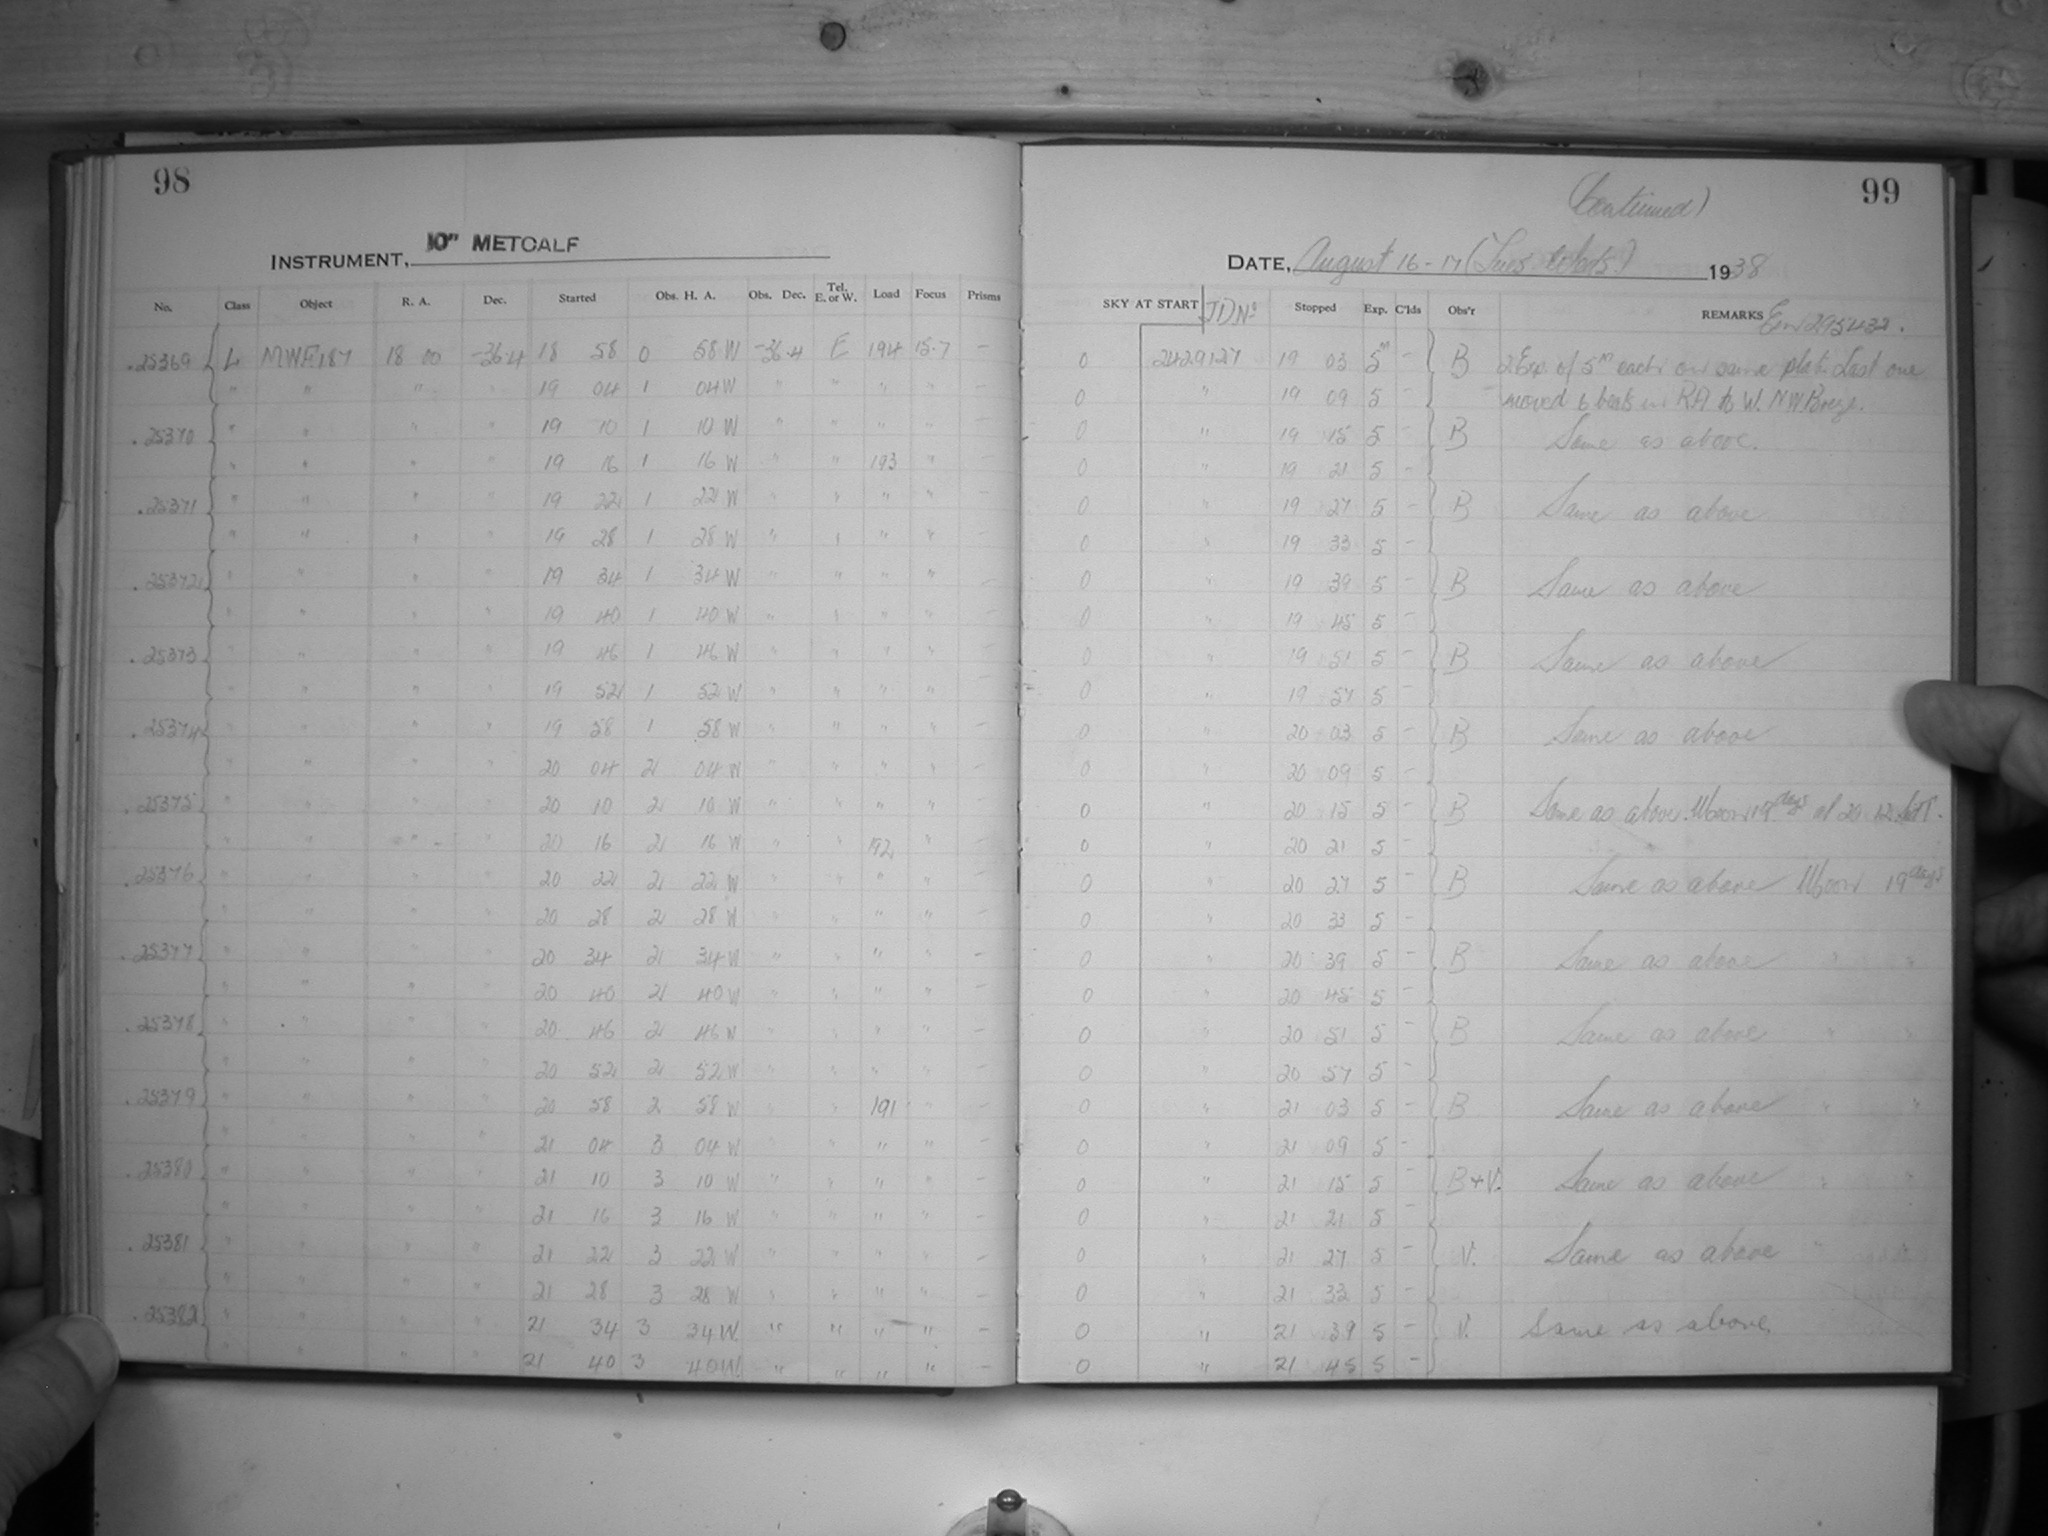 98
INSTRUMENT, 10" METCALF
No. Class Object R. A. Dec. Started Obs. H. A. Obs. Dec. Tel. E. or W. Load Focus Prisms
.25369 L MWF187 18 00 -36.4 18 58 0 58 W -36.4 E 194 15.7 -
" " " " 19 04 1 04 W " " " " -
.25370 " " " " 19 10 1 10 W " " " " -
" " " " 19 16 1 16 W " " 193 " -
.25371 " " " " 19 22 1 22 W " " " " -
" " " " 19 28 1 28 W " " " " -
.25372 " " " " 19 34 1 34 W " " " " -
" " " " 19 40 1 40 W " " " " -
.25373 " " " " 19 46 1 46 W " " " " -
" " " " 19 52 1 52 W " " " " -
.25374 " " " " 19 58 1 58 W " " " " -
" " " " 20 04 2 04 W " " " " -
.25375 " " " " 20 10 2 10 W " " " " -
" " " " 20 16 2 16 W " " 192 " -
.25376 " " " " 20 22 2 22 W " " " " -
" " " " 20 28 2 28 W " " " " -
.25377 " " " " 20 34 2 34 W " " " " -
" " " " 20 40 2 40 W " " " " -
.25378 " " " " 20 46 2 46 W " " " " -
" " " " 20 52 2 52 W " " " " -
.25379 " " " " 20 58 2 58 W " " 191 " -
" " " " 21 04 3 04 W " " " " -
.25380 " " " " 21 10 3 10 W " " " " -
" " " " 21 16 3 16 W " " " " -
.25381 " " " " 21 22 3 22 W " " " " -
" " " " 21 28 3 28 W " " " " -
.25382 " " " " 21 34 3 34 W. " " " " -
" " " " 21 40 3 40 W. " " " " -
99
(Continued)
DATE, August 16-17 (Tues. Weds.) 1938
SKY AT START JD No Stopped Exp. C'lds Obs'r REMARKS
0 2429127 19 03 5m - B 2 Exp. of 5m each on same plate. Last one
0 " 19 09 5 - moved 6 beats in RA to W. NW Breeze.
0 " 19 15 5 - B Same as above.
0 " 19 21 5 -
0 " 19 27 5 - B Same as above
0 " 19 33 5 -
0 " 19 39 5 - B Same as above
0 " 19 45 5 -
0 " 19 51 5 - B Same as above
0 " 19 57 5 -
0 " 20 03 5 - B Same as above
0 " 20 09 5 -
0 " 20 15 5 - B Same as above. Moon 19 days at 20 12
0 " 20 21 5 -
0 " 20 27 5 - B Same as above Moon 19 days
0 " 20 33 5 -
0 " 20 39 5 - B Same as above " "
0 " 20 45 5 -
0 " 20 51 5 - B Same as above " "
0 " 20 57 5 -
0 " 21 03 5 - B Same as above " "
0 " 21 09 5 -
0 " 21 15 5 - B+V. Same as above " "
0 " 21 21 5 -
0 " 21 27 5 - V. Same as above " "
0 " 21 33 5 -
0 " 21 39 5 - V. Same as above
0 " 21 45 5 -